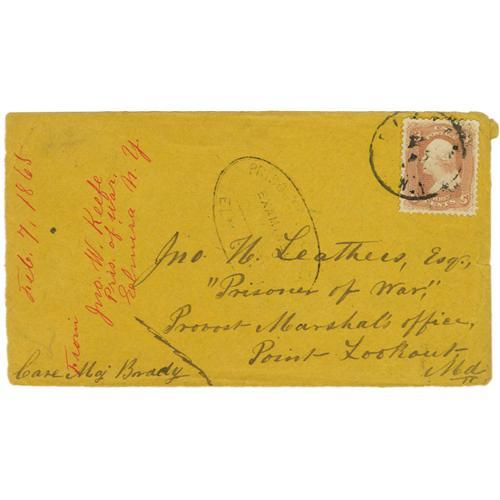 Feb. 7, 1865
From Jno W. Keefe
Pris. of War.
Elmira N. Y.
Jno. N. Leathers, Esq.,
"Prisoner of War,"
Provost Marshal's office,
Point Lookout,
Md
Care Maj Brady
EXAM
3